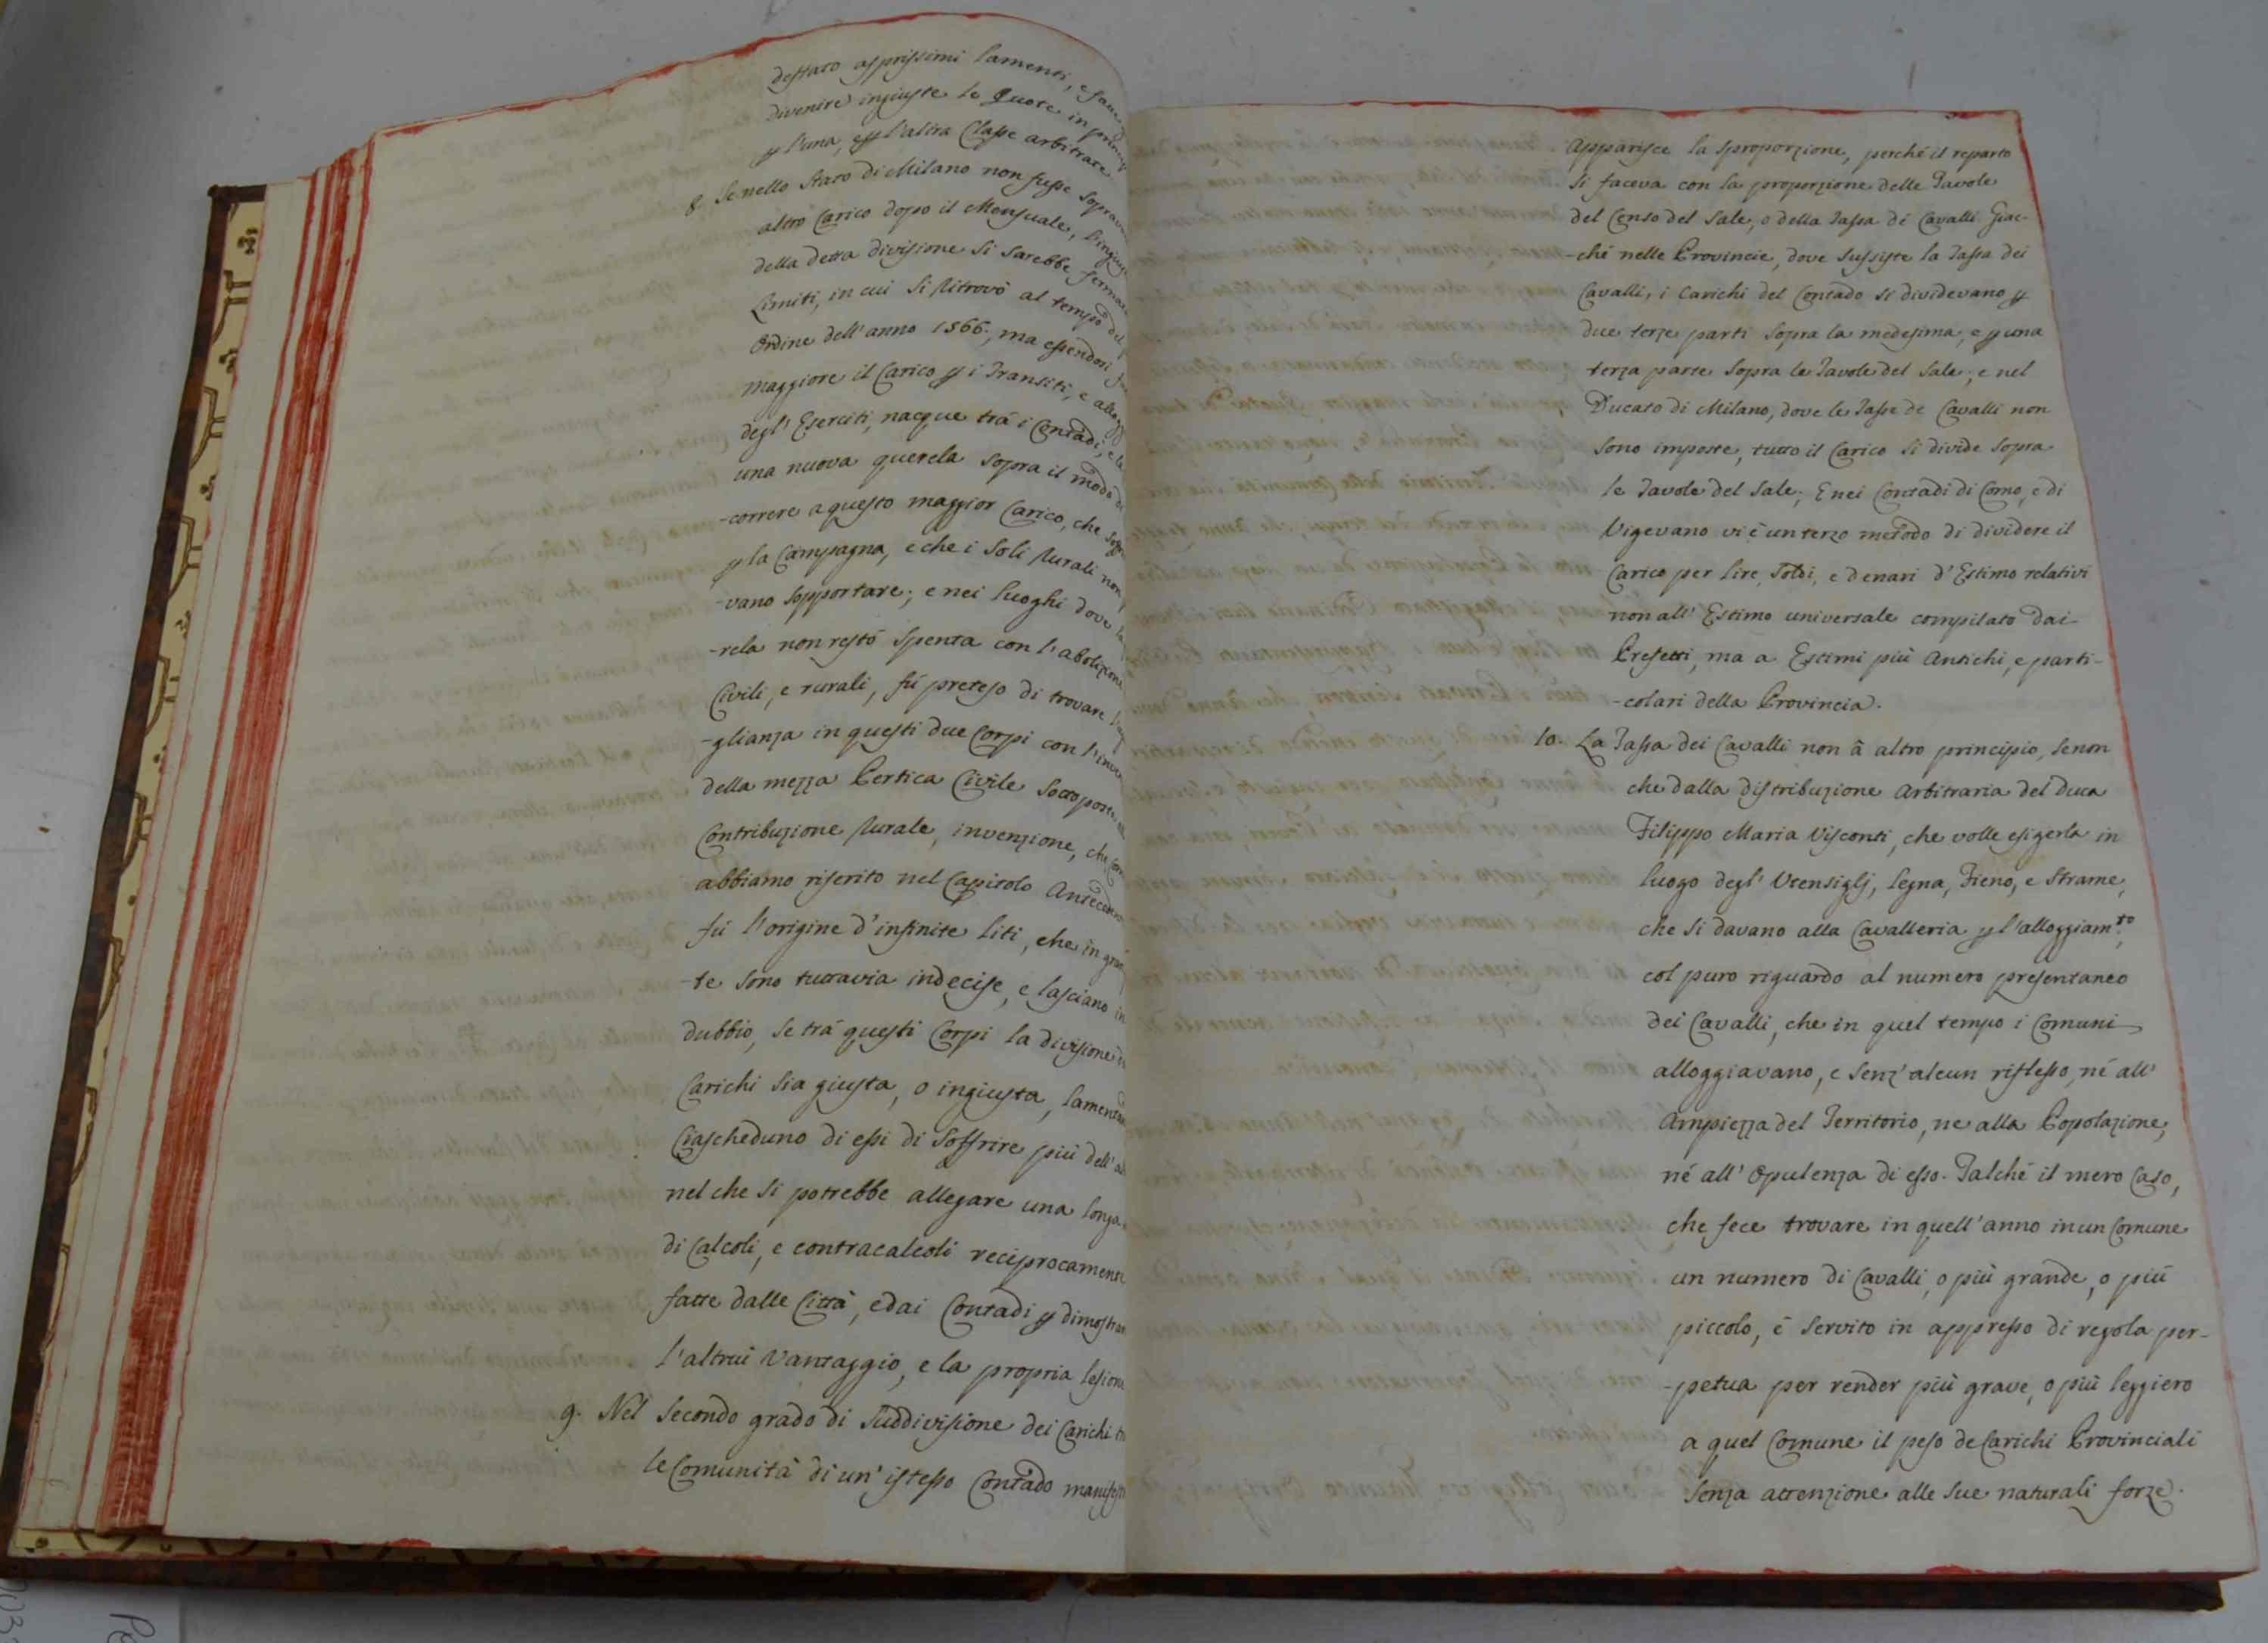 destato asprissimi lamenti, e fatto
divenire ingiuste le Quote in
p l'una, e p l'altra Classe arbitrate
8. Se nello Stato di Milano non fusse
altro Carico dopo il Mensuale,
della detta divisione si sarebbe
Limiti, in cui si ritrovò al tempo del
Ordine dell'anno 1566., ma essendosi
maggiore il Carico p i Transiti, e
degl'Eserciti, nacque trà i Contadi, e
una nuova querela sopra il modo di
-correre a questo maggior Carico, che
p la Campagna, e che i soli Rurali non
-vano sopportare; e nei luoghi dove la
-rela non restò spenta con l'abolizione
Civili, e rurali, fù preteso di trovare
-glianza in questi due Corpi con
della mezza Pertica Civile
Contribuzione Rurale, invenzione, che
abbiamo riferito nel Capitolo
fù l'origine d'infinite liti, che in
-te sono tuttavia indecise, e lasciano in
dubbio, se trà questi Corpi la divisione
Carichi sia giusta, o ingiusta,
Ciascheduno di essi di soffrire più
nel che si potrebbe allegare una
di Calcoli, e contracalcoli
fatte dalle Città, e dai Contadi p
l'altrui Vantaggio, e la propria lesione
9. Nel secondo grado di suddivisione dei Carichi
le Comunità di un'istesso Contado
Apparisce la sproporzione, perché il reparto
si faceva con la proporzione delle Tavole
del Censo del Sale, o della Tassa dè Cavalli Giac-
-ché nelle Provincie, dove sussiste la Tassa dei
Cavalli, i Carichi del Contado si dividevano p
due terze parti sopra la medesima, e p una
terza parte sopra le Tavole del Sale; e nel
Ducato di Milano, dove le Tasse de Cavalli non
sono imposte, tutto il Carico si divide sopra
le Tavole del Sale; E nei Contadi di Como, e di
Vigevano vi è un terzo metodo di dividere il
Carico per lire, soldi, e denari d'Estimo relativi
non all'Estimo universale compilato dai
Prefetti, ma a Estimi più Antichi, e parti-
-colari della Provincia.
10. La Tassa dei Cavalli non à altro principio, senon
che dalla distribuzione Arbitraria del Duca
Filippo Maria Visconti, che volle esigerla in
luogo degl'Utensiglj, legna, Fieno, e Strame,
che si davano alla Cavalleria p l'alloggiam.to,
col puro riguardo al numero presentaneo
dei Cavalli, che in quel tempo i Comuni
alloggiavano, e senz'alcun riflesso, né all'
Ampiezza del Territorio, ne alla Popolazione,
né all'Opulenza di esso. Talché il mero Caso,
che fece trovare in quell'anno in un Comune
un numero di Cavalli, o più grande, o più
piccolo, è servito in appresso di regola per-
-petua per render più grave, o più leggiero
a quel Comune il peso de Carichi Provinciali
senza attenzione alle sue naturali forze.